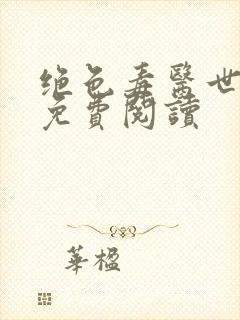 绝色毒醫世
免費閱讀
華楹